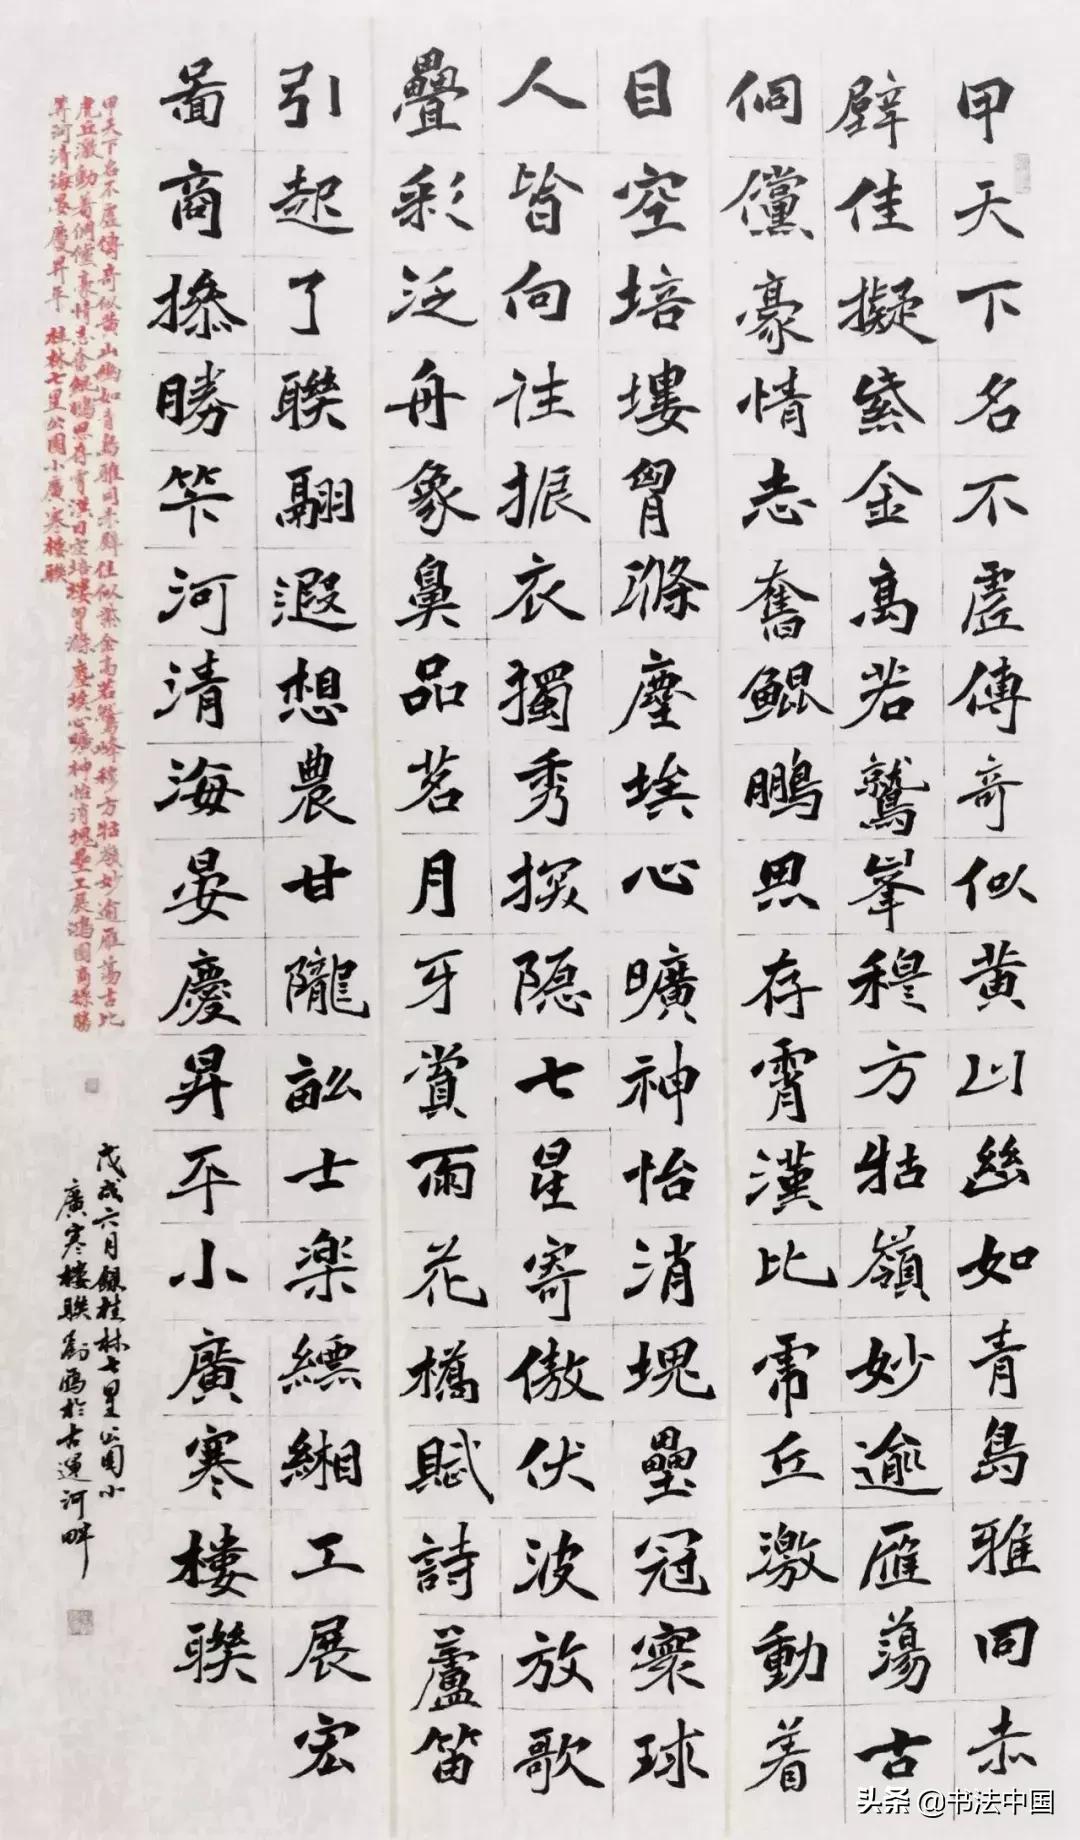 甲天下名不虛傳奇似黃山幽如青島雅同赤
壁佳擬紫金高若鷲峯穆方牯嶺妙逾雁蕩古
比虎丘激動着
倜儻豪情志奮鯤鵬思存霄漢
目空培塿胷滌塵埃心曠神怡消塊壘冠寰球
人皆向往振衣獨秀探隱七星寄傲伏波放歌
疊彩泛舟象鼻品茗月牙賞雨花橋賦詩蘆笛
引起了聯翩遐想農甘隴畝士樂縹緗工展宏
啚商操勝筭河清海晏慶昇平小廣寒樓聯
甲天下名不虛傳奇似黃山幽如青島雅同赤壁佳似紫金高若鷲峰穆方牯嶺妙逾雁蕩古比
虎丘激動着倜儻豪情志奮鯤鵬思存霄漢目空培塿胷滌塵埃心曠神怡消塊壘工展鴻圖商操勝
筭河清海晏慶昇平 桂林七星公園小廣寒樓聯
戊戌六月錄桂林七星公園小
廣寒樓聯 於古運河畔
头条 @书法中国